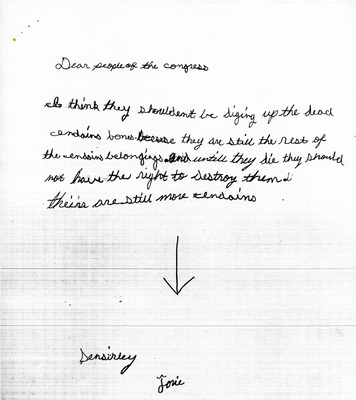 Dear people of the congress
I think they shouldent be diging up the dead
cendains bons becuse they are still the rest of
the cendains belongings and untill they die they should
not have the right to destroy them
theirs are still more cendains
Sensirley